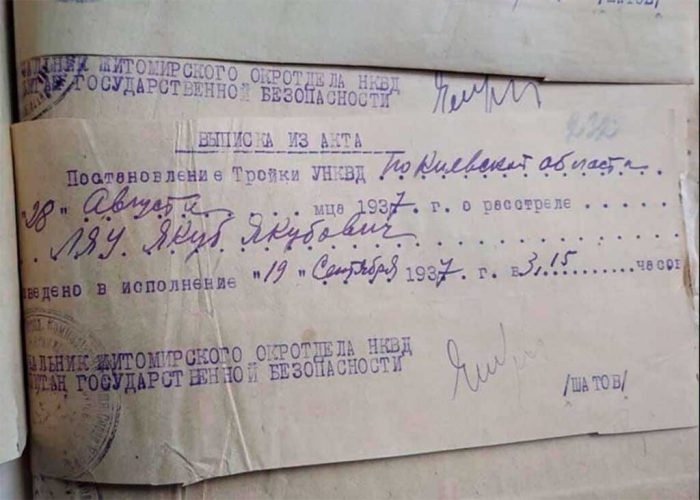 ШАТОВ/
АЛЬНИК ЖИТОМИРСКОГО ОКРОТДЕЛА НКВД
ИТАН ГОСУДАРСТВЕННОЙ БЕЗОПАСНОСТИ
232
ВЫПИСКА ИЗ АКТА
Постановление Тройки УНКВД по Киевской области
"28" Августа мца 1937. г. о расстреле
ЛЯУ Якуб Якубович
иведено в исполнение "19" Сентября 1937 г. в 3.15 часов
АЛЬНИК ЖИТОМИРСКОГО ОКРОТДЕЛА НКВД
ИТАН ГОСУДАРСТВЕННОЙ БЕЗОПАСНОСТИ
/ШАТОВ/